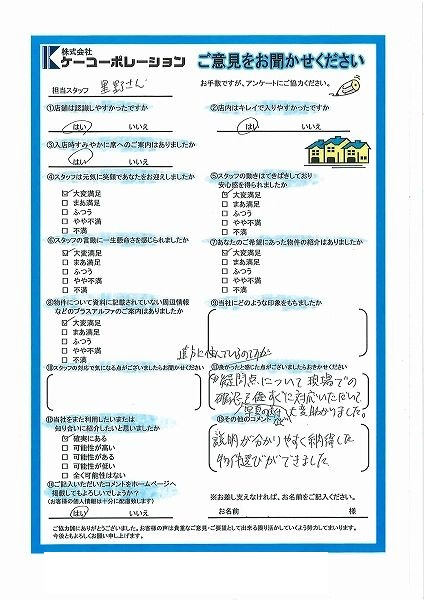 株式会社
ケーコーポレーション
ご意見をお聞かせください
担当スタッフ 星野さん
お手数ですが、アンケートにご協力ください。
①店舗は認識しやすかったですか
はい いいえ
②店内はキレイで入りやすかったですか
はい いいえ
③入店時すみやかに席へのご案内はありましたか
はい いいえ
④スタッフは元気に笑顔であなたをお迎えしましたか
大変満足
まあ満足
ふつう
やや不満
不満
⑤スタッフの動きはてきぱきしており
安心感を得られましたか
大変満足
まあ満足
ふつう
やや不満
不満
⑥スタッフの言動に一生懸命さを感じられましたか
大変満足
まあ満足
ふつう
やや不満
不満
⑦あなたのご希望にあった物件の紹介はありましたか
大変満足
まあ満足
ふつう
やや不満
不満
⑧物件について資料に記載されていない周辺情報
などのプラスアルファのご案内はありましたか
大変満足
まあ満足
ふつう
やや不満
不満
⑨当社にどのような印象をもちましたか
⑩スタッフの対応で気になる点がございましたらお聞かせください
⑪良かったと感じた点がございましたらおきかせください
疑問点について現場での
確認を含めすぐに対応いただいて
大変助かりました。
⑫当社をまた利用したいまたは
知り合いに紹介したいと思いましたか
確実にある
可能性が高い
可能性がある
可能性が低い
全く可能性はない
⑬その他のコメント
説明が分かりやすく納得した
物件選びができました
⑭ご記入いただいたコメントをホームページへ
掲載してもよろしいでしょうか?
(お客様の個人情報は十分に配慮致します)
はい いいえ
※お差し支えなければ、お名前をご記入ください。
お名前 様
ご協力誠にありがとうございました。お客様の声は貴重なご意見・ご要望として出来る限り活かしていくよう努力してまいります。
今後ともよろしくお願い申し上げます。